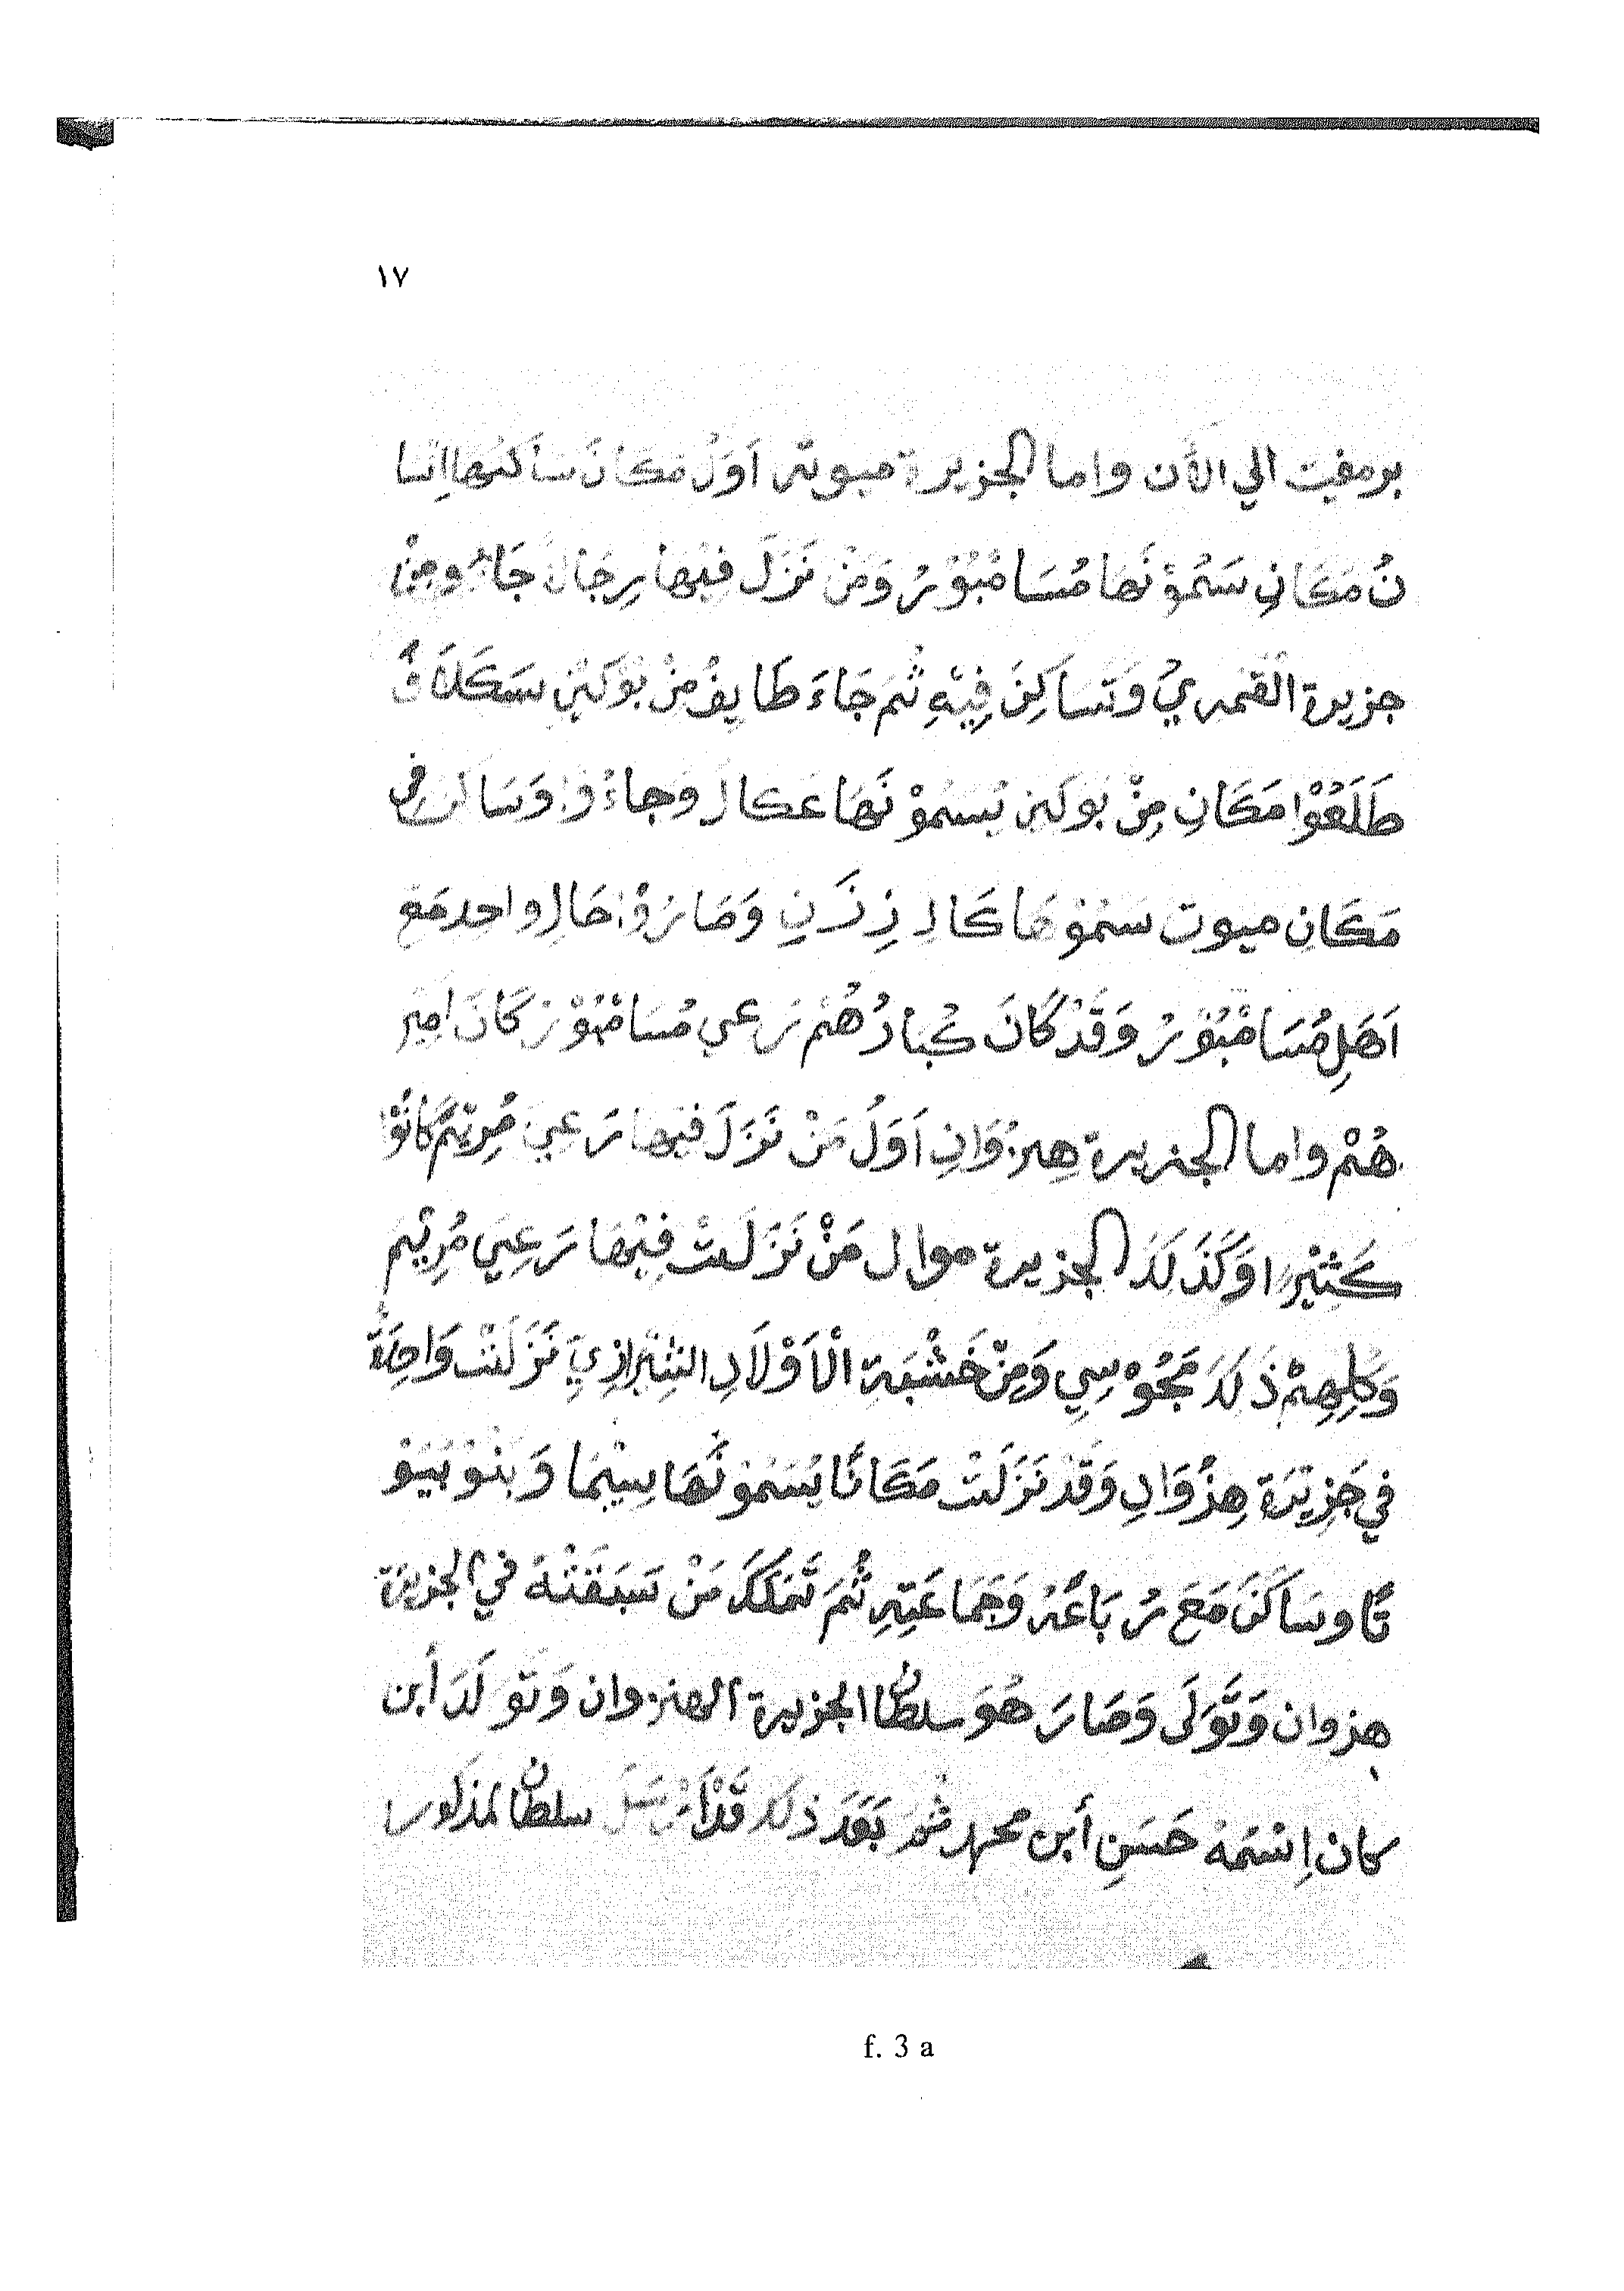 ١٧
برمفيت الي الأن واما الجزيرة ميوته اَوَلُ مَكَانَ سَاكنهَا اِنسا
نُ مَكَانِ سَمُوْنَهَا مُسَامْبُوْرُ وَمَنْ نَزَلَ فِيْهَا رِجَالُ جَاءُ ومِنْ
جزيرة القَمْرِيُ وَتَسَاكِنَ فِيْهِ ثُمَ جَاءَ طَايِفُ مِنْ بُوْكِيْنِ سَكَلاَفُ
طَلَعُوْا مَكَانِ مِنْ بُوكِين يُسَمُوْنَهَا عَكَالَ وَجاءُوْا وَسَاكن في
مَكَانِ ميوت سَمُوْهَا كَالِ زِنَنِ وَصَارُوْا حَالِ واحد مَع
اَهَلِ مُسَامْبُوْرُ وَقَدْ كَانَ كُبَارُهُمْ رَعي مُسَامْبُوْرُ كَانَ امِيْر
هُمْ واما الجزيرة هِنزُوَانِ اَوَلُ مَنْ نَزَلَ فيها رَعِيَ مُرِيْمُ كَانُوْا
كَثِيْرًا وَكَذَلَكَ الجزيرة موال مَنْ نَزَلَتْ فِيْهَا رَعِيَ مُرِيْم
وَكلِهِمْ ذَلَكَ مَجُوْسِي وَمِنْ خَشْبَةِ الْاَوْلاَدِ الشِيْرازِيَ نَزَلَتْ وَاحِدَةً
في جَزِيْرَة هِنزُوَانِ وَقَدْ نَزَلَتْ مَكَانًا يُسَمُوْنَهَا سِيْمَا وَبَنُوْ بُيُوْ
تًا وسَاكَنَ مَعَ رُبَاعَهُ وَجَمَاعَتِهِ ثُمَ تَمَلَكَ مَنْ سَبَقَتْهُ في الجزيرة
هنزوان وَتَوَلَى وَصَارَ هُوَ سلطان الجزيرة الهنزوان وَتَوَلَدَ أبن
كان اِسْمَهُ حَسَنِ أبن محمد ثمَ بَعَدَ ذلك قَدْ اَرْسَلَ سلطان المذكور
f. 3 a